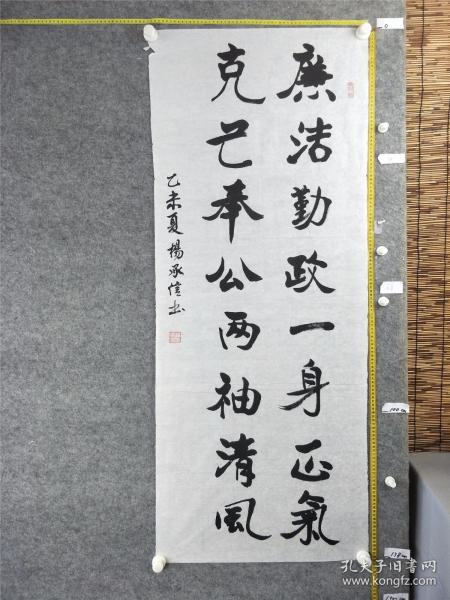 廉洁勤政一身正氣
克己奉公两袖清風
乙未夏楊承信书
孔夫子旧书网
www.kongfz.com